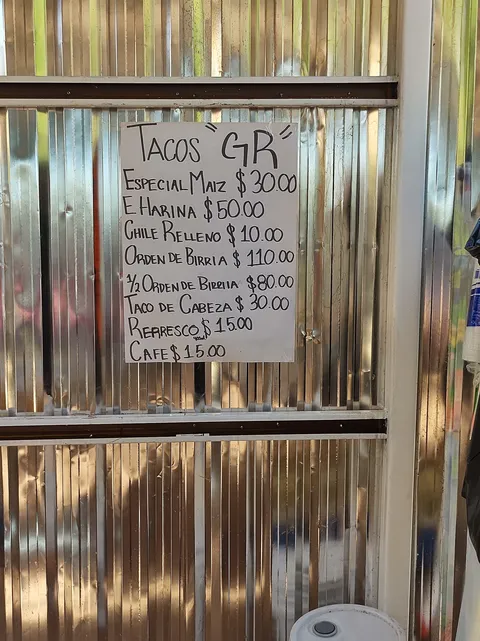 TACOS "GR"
ESPECIAL MAIZ $30.00
E HARINA $50.00
CHILE RELLENO $10.00
ORDEN DE BIRRIA $110.00
1/2 ORDEN DE BIRRIA $80.00
TACO DE CABEZA $30.00
REFRESCO $15.00
CAFE $15.00